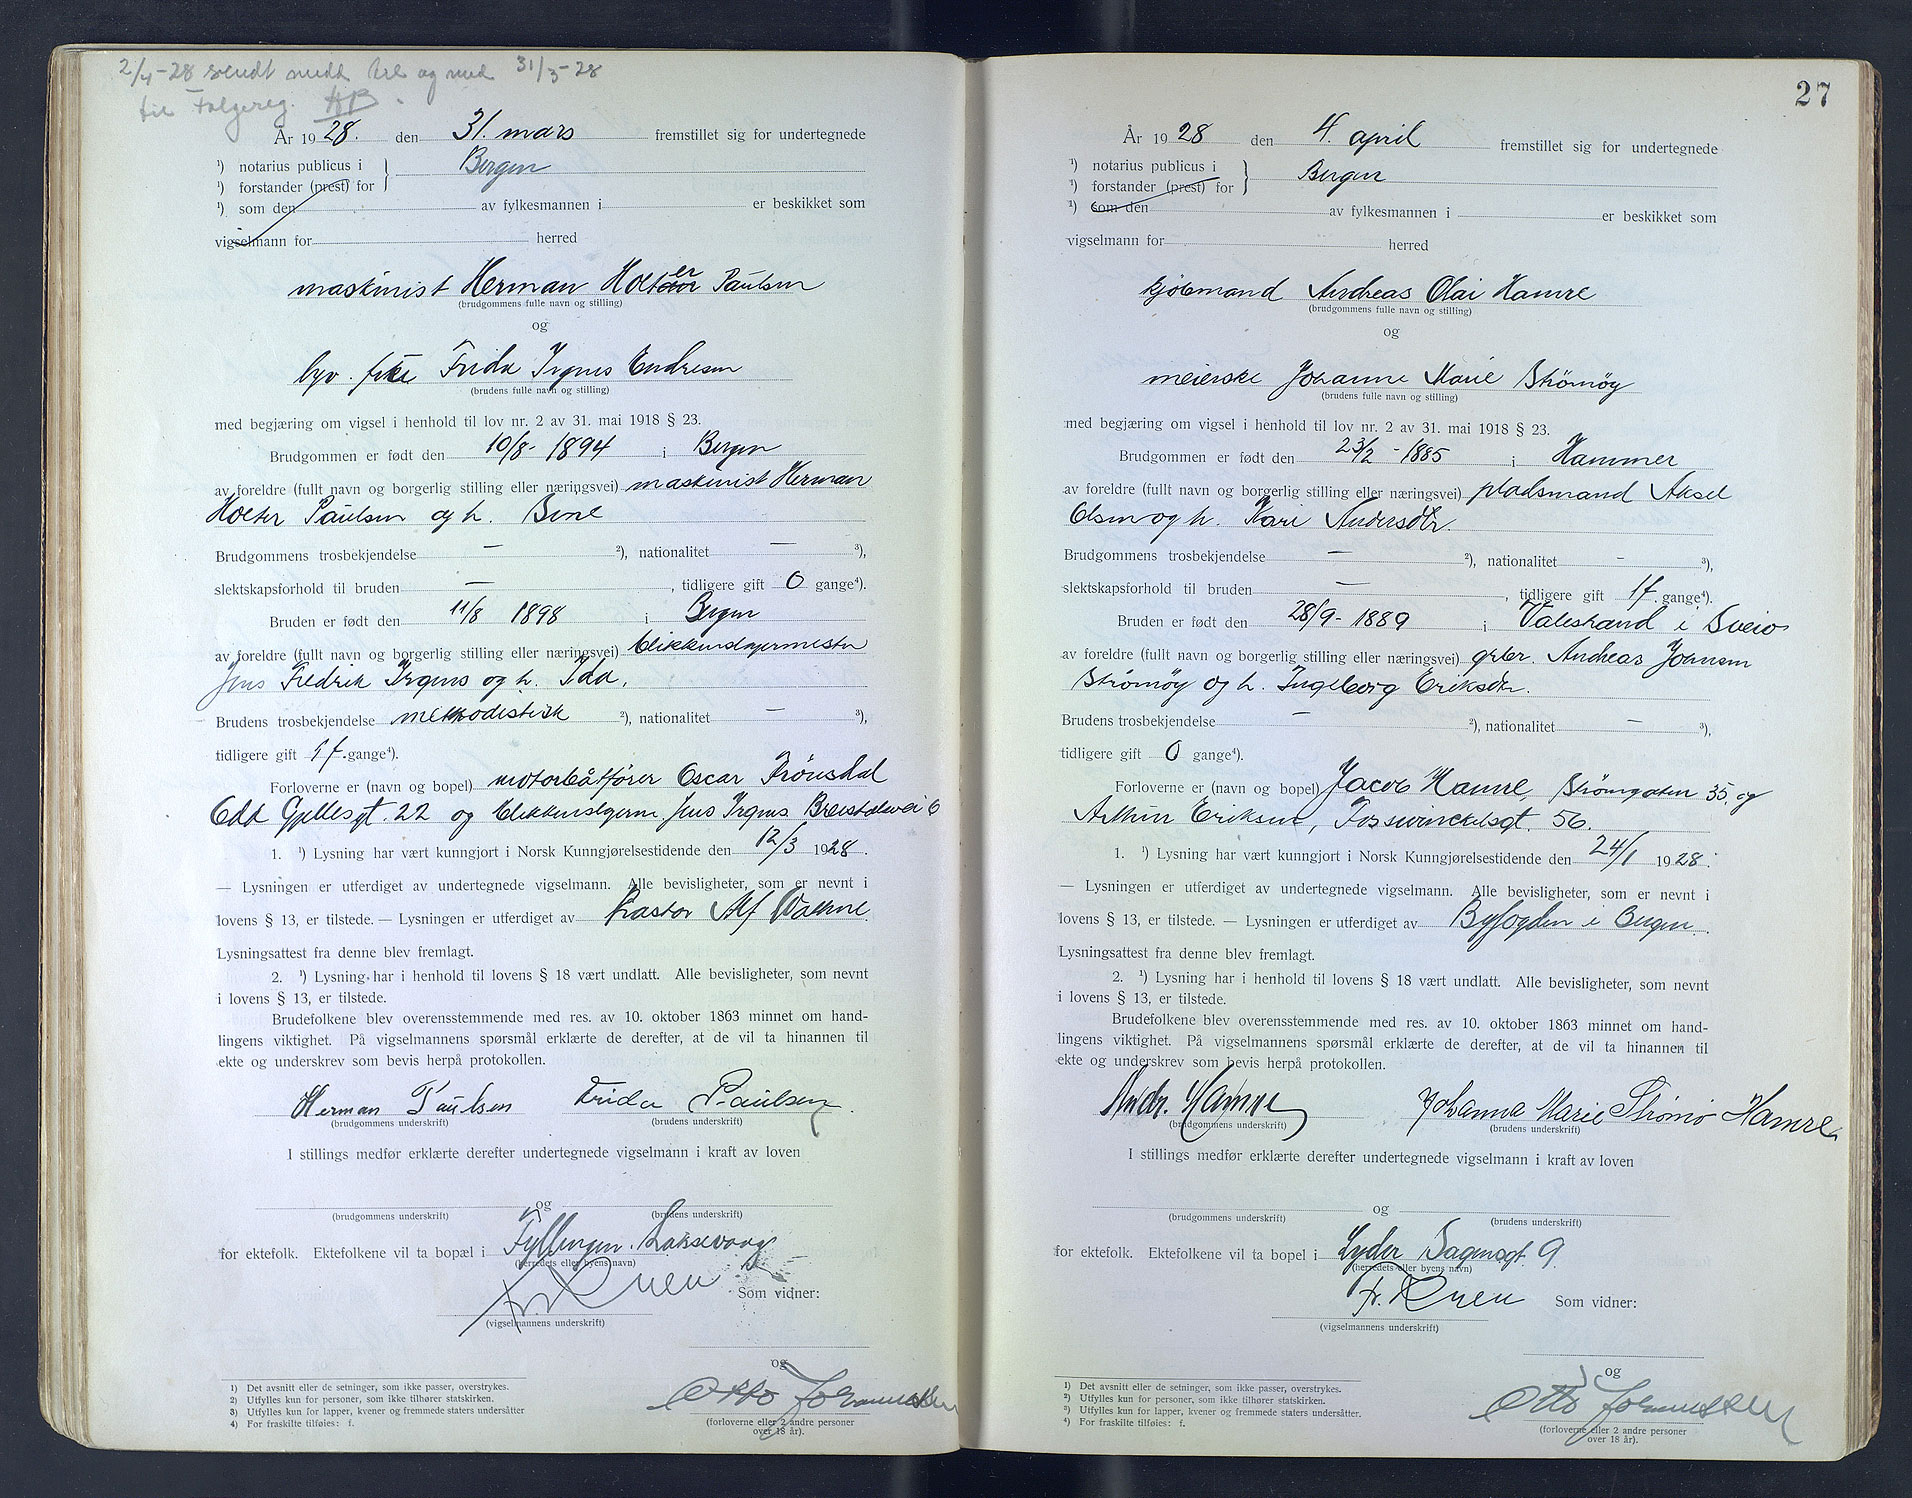 2/4-28 sendt medd. til og med 31/3-28
til Folgereg. HB.
År 1928. den 31. mars fremstillet sig for undertegnede
¹) notarius publicus i } Bergen
¹) forstander (prest) for
¹) som den av fylkesmannen i er beskikket som
vigselmann for herred
maskinist Herman Holter Paulsen
(brudgommens fulle navn og stilling)
og
Frida Irgens Endresen
(brudens fulle navn og stilling)
med begjæring om vigsel i henhold til lov nr. 2 av 31. mai 1918 § 23.
Brudgommen er født den 10/8- 1894 i Bergen
av foreldre (fullt navn og borgerlig stilling eller næringsvei) maskinist Herman
Holter Paulsen og h.
Brudgommens trosbekjendelse — ²), nationalitet — ³),
slektskapsforhold til bruden — , tidligere gift 0 gange⁴).
Bruden er født den 11/8 1898 i Bergen
av foreldre (fullt navn og borgerlig stilling eller næringsvei) blikkenslagermester
Jens Fredrik Irgens og h. Ida.
Brudens trosbekjendelse methodistisk ²), nationalitet — ³),
tidligere gift 1 f. gange⁴).
Forloverne er (navn og bopel) motorbåtfører Oscar Frønsdal
Edd Gjellesgt. 22 og blikkenslagerm Jens Irgens Breistølsvei 6
1. ¹) Lysning har vært kunngjort i Norsk Kunngjørelsestidende den 12/3 1928.
— Lysningen er utferdiget av undertegnede vigselmann. Alle bevisligheter, som er nevnt i
lovens § 13, er tilstede. — Lysningen er utferdiget av Pastor Alf Wathne.
Lysningsattest fra denne blev fremlagt.
2. ¹) Lysning har i henhold til lovens § 18 vært undlatt. Alle bevisligheter, som nevnt
i lovens § 13, er tilstede.
Brudefolkene blev overensstemmende med res. av 10. oktober 1863 minnet om hand-
lingens viktighet. På vigselmannens spørsmål erklærte de derefter, at de vil ta hinannen til
ekte og underskrev som bevis herpå protokollen.
Herman Paulsen Frida Paulsen.
(brudgommens underskrift) (brudens underskrift)
I stillings medfør erklærte derefter undertegnede vigselmann i kraft av loven
og
(brudgommens underskrift) (brudens underskrift)
for ektefolk. Ektefolkene vil ta bopæl i Fyllingen, Laksevaag
(herredets eller byens navn)
Fr. Knen Som vidner:
(vigselmannens underskrift)
og
Otto Johannessen
(forloverne eller 2 andre personer
over 18 år).
1) Det avsnitt eller de setninger, som ikke passer, overstrykes.
2) Utfylles kun for personer, som ikke tilhører statskirken.
3) Utfylles kun for lapper, kvener og fremmede staters undersåtter
4) For fraskilte tilføies: f.
27
År 1928 den 4. april fremstillet sig for undertegnede
¹) notarius publicus i } Bergen
¹) forstander (prest) for
¹) som den av fylkesmannen i er beskikket som
vigselmann for herred
kjøbmand Andreas Olai Hamre
(brudgommens fulle navn og stilling)
og
meierske Johanne Marie Strømøy
(brudens fulle navn og stilling)
med begjæring om vigsel i henhold til lov nr. 2 av 31. mai 1918 § 23.
Brudgommen er født den 23/2 - 1885 i Hammer
av foreldre (fullt navn og borgerlig stilling eller næringsvei) pladsmand Aksel
Olsen og h. Kari Andersdtr.
Brudgommens trosbekjendelse — ²), nationalitet - ³),
slektskapsforhold til bruden — , tidligere gift 1 f. gange⁴).
Bruden er født den 28/9- 1889 i Valestrand i Sveio
av foreldre (fullt navn og borgerlig stilling eller næringsvei) grbr. Andreas Johnsen
Strømøy og h. Ingeborg Eriksdtr.
Brudens trosbekjendelse — ²), nationalitet — ³),
tidligere gift 0 gange⁴).
Forloverne er (navn og bopel) Jacob Hamre, Strømgaten 35, og
Arthur Eriksen, Fosswinckelsgt. 56.
1. ¹) Lysning har vært kunngjort i Norsk Kunngjørelsestidende den 24/1 1928.
— Lysningen er utferdiget av undertegnede vigselmann. Alle bevisligheter, som er nevnt i
lovens § 13, er tilstede. — Lysningen er utferdiget av Byfogden i Bergen.
Lysningsattest fra denne blev fremlagt.
2. ¹) Lysning har i henhold til lovens § 18 vært undlatt. Alle bevisligheter, som nevnt
i lovens § 13, er tilstede.
Brudefolkene blev overensstemmende med res. av 10. oktober 1863 minnet om hand-
lingens viktighet. På vigselmannens spørsmål erklærte de derefter, at de vil ta hinannen til
ekte og underskrev som bevis herpå protokollen.
Andr. Hamre Johanna Marie Strømø Hamre
(brudgommens underskrift) (brudens underskrift)
I stillings medfør erklærte derefter undertegnede vigselmann i kraft av loven
og
(brudgommens underskrift) (brudens underskrift)
for ektefolk. Ektefolkene vil ta bopel i Lyder Sagensgt. 9.
(herredets eller byens navn)
Fr. Knen Som vidner:
(vigselmannens underskrift)
og
Otto Johannessen
(forloverne eller 2 andre personer
over 18 år).
1) Det avsnitt eller de setninger, som ikke passer, overstrykes.
2) Utfylles kun for personer, som ikke tilhører statskirken.
3) Utfylles kun for lapper, kvener og fremmede staters undersåtter.
4) For fraskilte tilføies: f.